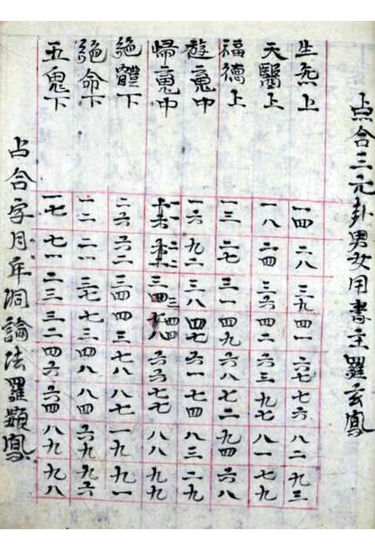 点合三元卦男女用書主羅玄鳳
生炁上 一四 二八 三九 四一 六七 七六 八二 九三
天醫上 一八 二四 三六 四二 六三 七九 八一 七九
福德上 一三 二七 三一 四九 六八 七二 九四 六八
遊䰟中 一六 九二 三八 四七 六一 七四 八三 二九
歸䰟中 六六 七七 八八 九九
絕體下 二六 六二 三四 四三 七八 八七 一九 九一
絕命下 一二 二一 三七 七三 四八 八四 六九 九六
五鬼下 一七 七一 二三 三二 四六 六四 八九 九八
占合字月年洞論法羅顕鳳